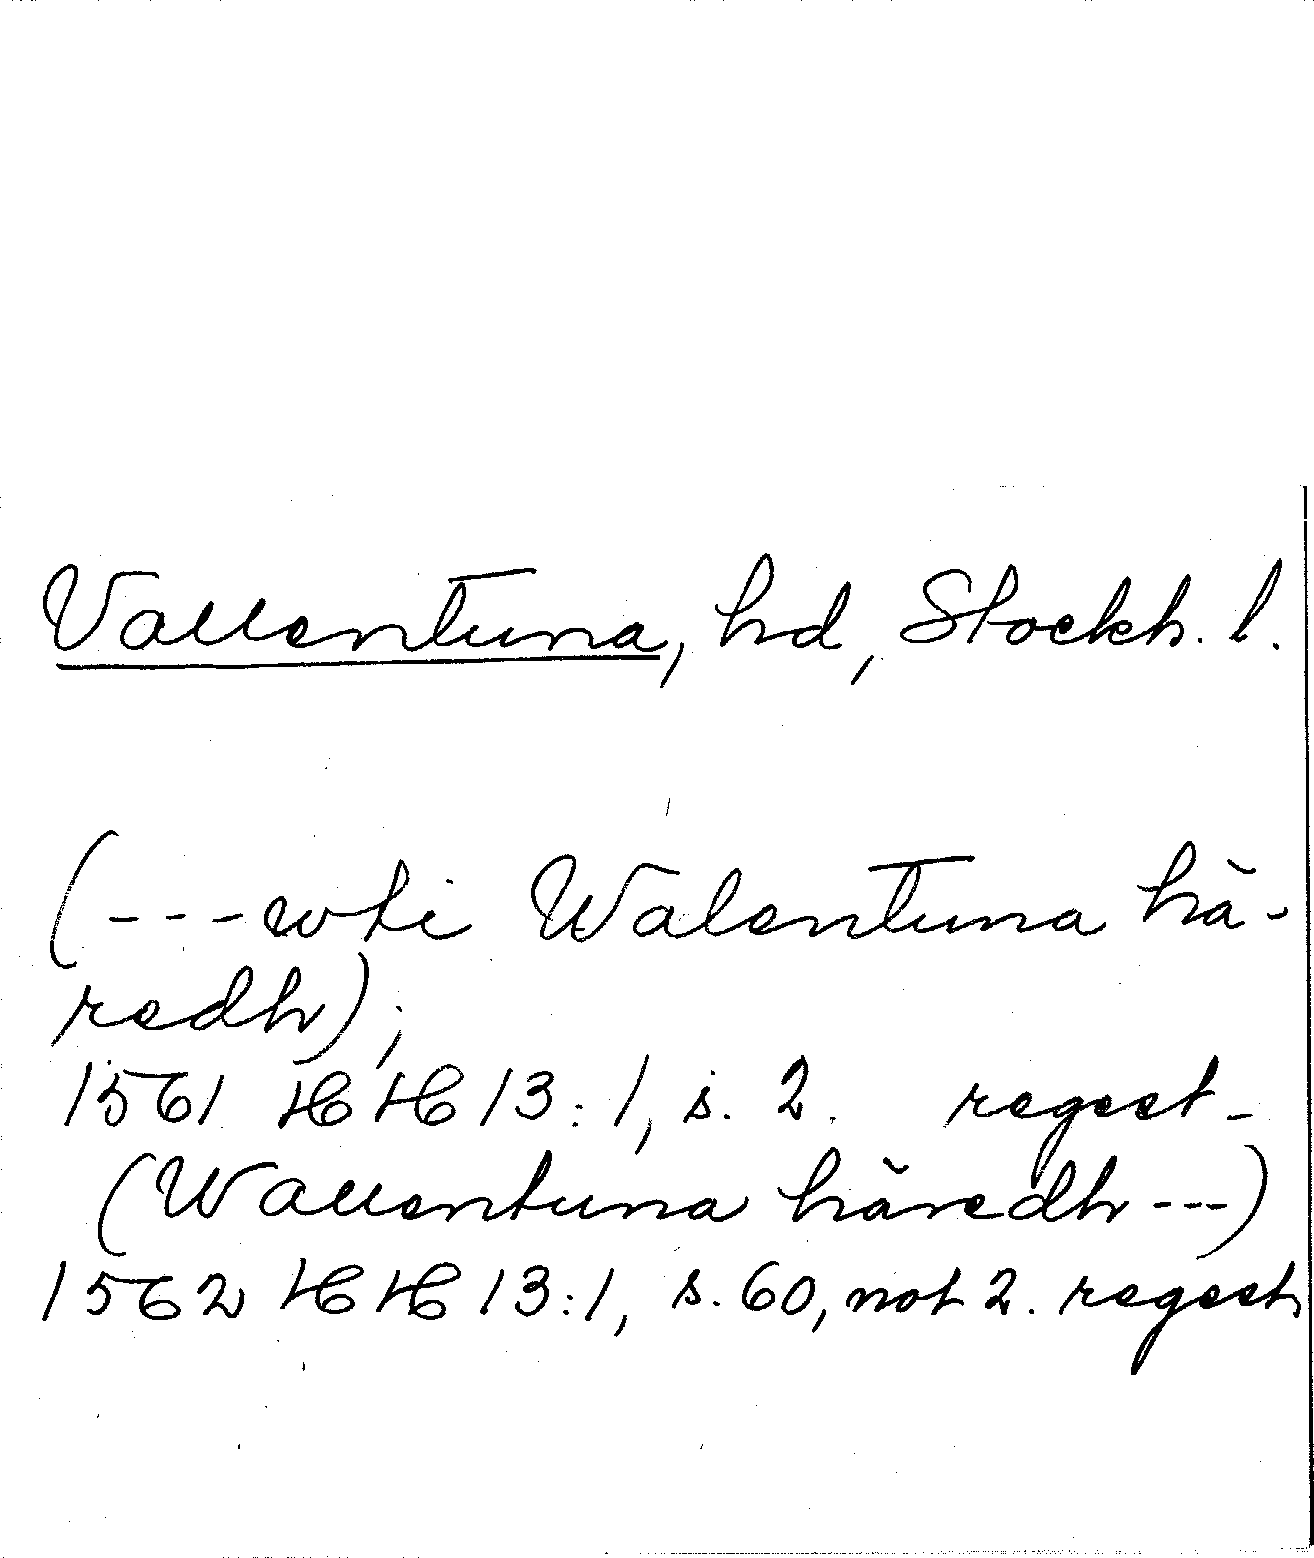 Vallentuna, hd, Stockh. l.
(---wti Walentuna hä-
redh);
1561 HH 13:1, s. 2. regest-
(Wallentuna häredh---)
1562 HH 13:1, s. 60, not 2. regest